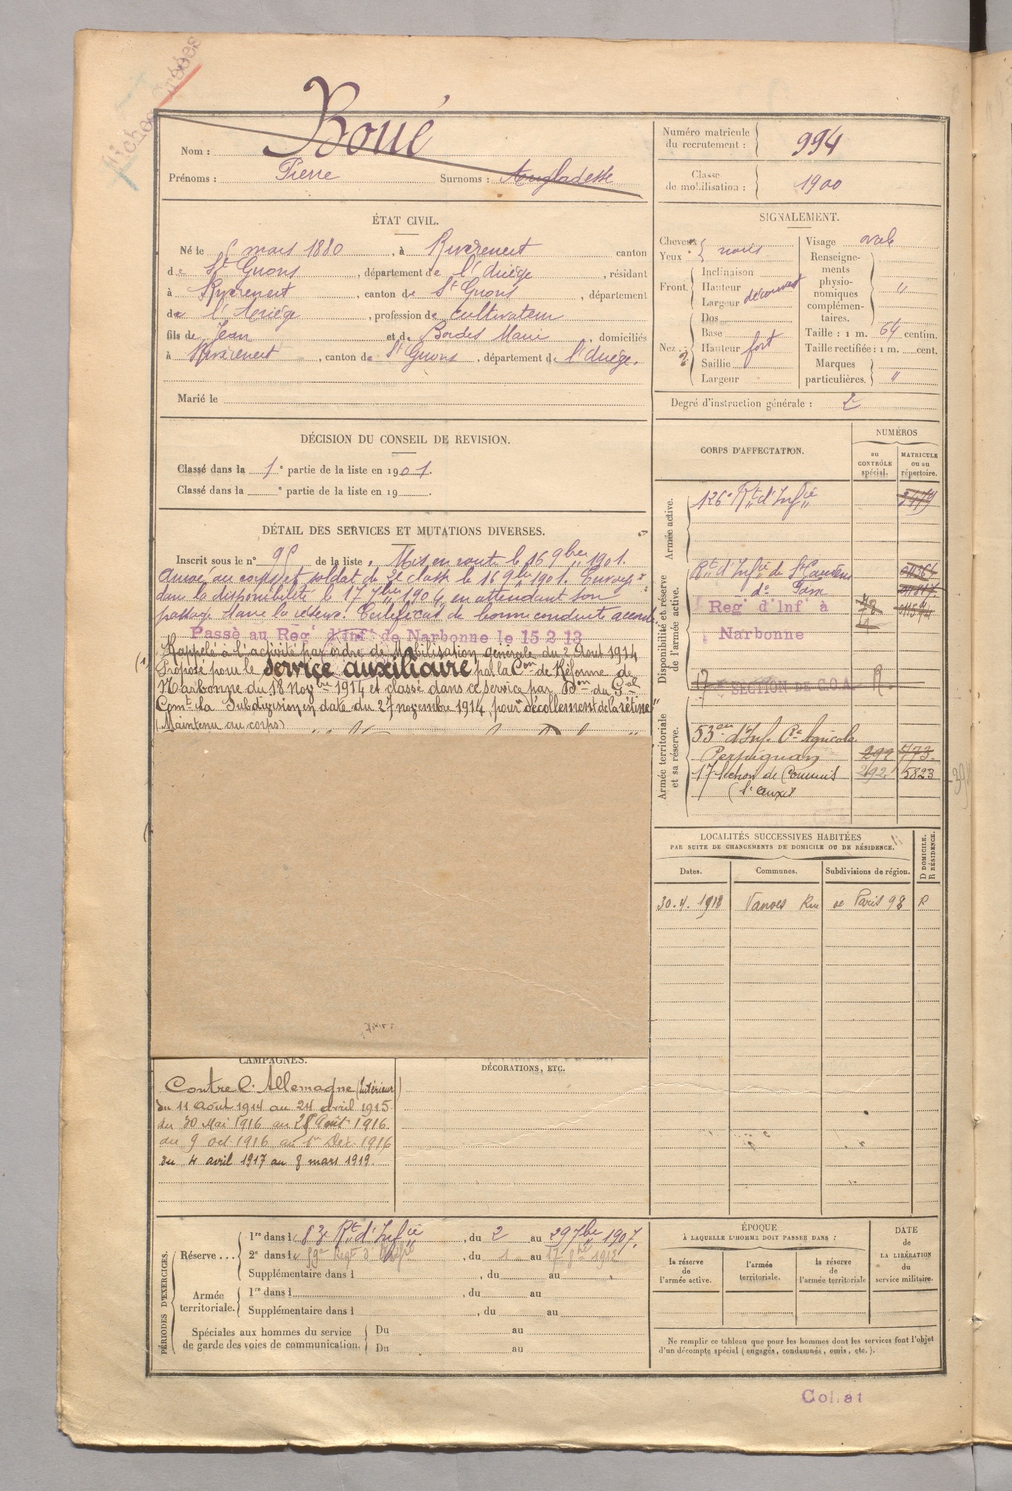 Fiches
Nom : Boué
Prénoms : Pierre Surnoms : Angladette
Numéro matricule du recrutement : 994
Classe de mobilisation : 1900
ÉTAT CIVIL.
Né le 5 mars 1880, à Riverenert canton
de St Girons, département de l'Ariège, résidant
à Riverenert, canton de St Girons, département
de l'Ariège, profession de cultivateur
fils de Jean et de Bordes Marie, domiciliés
à Riverenert, canton de St Girons, département de l'Ariège.
Marié le
SIGNALEMENT.
Cheveux
Yeux noirs
Front. Inclinaison
Hauteur
Largeur découvert
Nez. Dos
Base
Hauteur fort
Saillie
Largeur
Visage oval
Renseignements physionomiques complémentaires. "
Taille : 1 m. 64 centim.
Taille rectifiée : 1 m. cent.
Marques particulières. "
Degré d'instruction générale : 2
DÉCISION DU CONSEIL DE REVISION.
Classé dans la 1e partie de la liste en 1901.
Classé dans la e partie de la liste en 19
DÉTAIL DES SERVICES ET MUTATIONS DIVERSES.
Inscrit sous le n° 95 de la liste, Mis en route le 16 9bre 1901.
Arrivé au corps et soldat de 2e classe le 16 9bre 1901. Envoyé
dans la disponibilité le 17 7bre 1904 en attendant son
passage dans la réserve. Certificat de bonne conduite accordé.
Passé au Reg' d'Inf' de Narbonne le 15.2.13
Rappelé à l'activité par ordre de Mobilisation générale du 2 Août 1914
Proposé pour le service auxiliaire par la Con de Réforme de
Narbonne du 18 Novbre 1914 et classé dans ce service par Don du Gal
Comt la Subdivision en date du 27 novembre 1914, pour "décollement de la rétine"
(Maintenu au corps)
CORPS D'AFFECTATION.
NUMÉROS
au CONTRÔLE spécial.
MATRICULE ou au répertoire.
Armée active.
126e Rt d'Infie
Disponibilité et réserve de l'armée active.
Rt d'Infie de St Gaudens
do
Reg' d'Inf' à
Narbonne
17 SECTION DE C.O.A. R.
Armée territoriale et sa réserve.
53e d'Inf. Cie Agricole
Perpignan 299 773
17 Section de Commis 292 5823
(St auxre)
LOCALITÉS SUCCESSIVES HABITÉES
PAR SUITE DE CHANGEMENTS DE DOMICILE OU DE RÉSIDENCE.
Dates. Communes. Subdivisions de région. D DOMICILE. R RÉSIDENCE.
30.4.1912 Vanves Rue de Paris 98 R
CAMPAGNES.
Contre l'Allemagne (Intérieur)
du 11 Août 1914 au 24 avril 1915
du 30 Mai 1916 au 28 Août 1916
du 9 oct 1916 au 1er Dec. 1916
du 4 avril 1917 au 8 mars 1919.
DÉCORATIONS, ETC.
PÉRIODES D'EXERCICES.
Réserve... 1re dans le 83 Rt d'Infie, du 2 au 29 7bre 1907.
2e dans le 59e Regt d'Infie, du 1 au 17 8bre 1912
Supplémentaire dans l , du au
Armée territoriale. 1re dans l , du au
Supplémentaire dans l , du au
Spéciales aux hommes du service de garde des voies de communication. Du au
Du au
ÉPOQUE
À LAQUELLE L'HOMME DOIT PASSER DANS :
la réserve de l'armée active.
l'armée territoriale.
la réserve de l'armée territoriale
DATE de LA LIBÉRATION du service militaire.
Ne remplir ce tableau que pour les hommes dont les services font l'objet
d'un décompte spécial (engagés, condamnés, omis, etc.).
Col.at